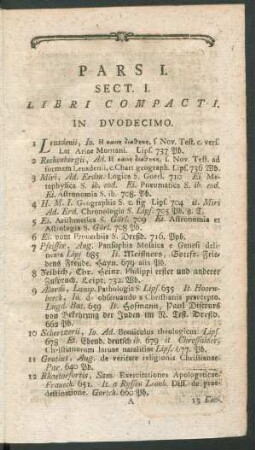 PARS I.
SECT. I.
LIBRI COMPACTI.
IN DVODECIMO.
1 Leusdenii, Io. Η καινη διαθηκη, s. Nov. Test. c. vers.
Lat. Ariae Montani. Lips. 737 Pb.
2 Rechenbergii, Ad. Η καινη διαθηκη, s. Nov. Test. ad
formam Leusdenii, c. chart. geograph. Lips. 736 Wb.
3 Miri, Ad. Erdm. Logica S. Goerl. 710 Ei. Me-
taphysica S. ib. eod. Ei. Pneumatica S. ib. eod.
Ei. Astronomia S. ib. 708. Pb.
4 H. M. I. Geographia S. c. fig Lips. 704 it. Miri
Ad. Erd. Chronologia S. Lips. 705 Pb. g. T.
5 Ei. Arithmetica S. Görl. 709 Ei Astronomia et
Astrologia S. Görl. 708 Pb.
6 Ei. vom Proverbiis S. Dresd. 716. Ppb.
7 Pfeiffer, Aug. Pansophia Mosaica e Genesi deli-
neata Lips 685 It. Meisners, Gottfr. Frie-
dens Freude. Hayn. 679 als Pb.
8 Neidich, Chr. Heinr. Philippi erster und anderer
Zuspruch. Leipz. 732 Wb.
9 Alardi, Lamp. Pathologia S. Lips 635 It. Hoorn-
beeck, Io. de obseruando a Christianis praecepto.
Lugd. Bat. 659 It. Hofmann, Paul Dissert.
von Bekehrung der Juden im N. Test. Dresd.
662 Pb
10 Scherzerii, Io. Ad. Breuiculus theologicus. Lips.
678 Et Ebend. deutsch ib. 679 it Chressulder,
Christianorum laruae natalitiae Lips. 677. Pb.
11 Grotius, Aug. de veritate religionis Christianae
Par. 640 Pb.
12 Rhaetorfortis, Sam. Exercitationes Apologeticae
Franeck. 651. It. a Ryssen Leonh. Diss. de prae-
destinatione. Gorich. 660 Pb.
A